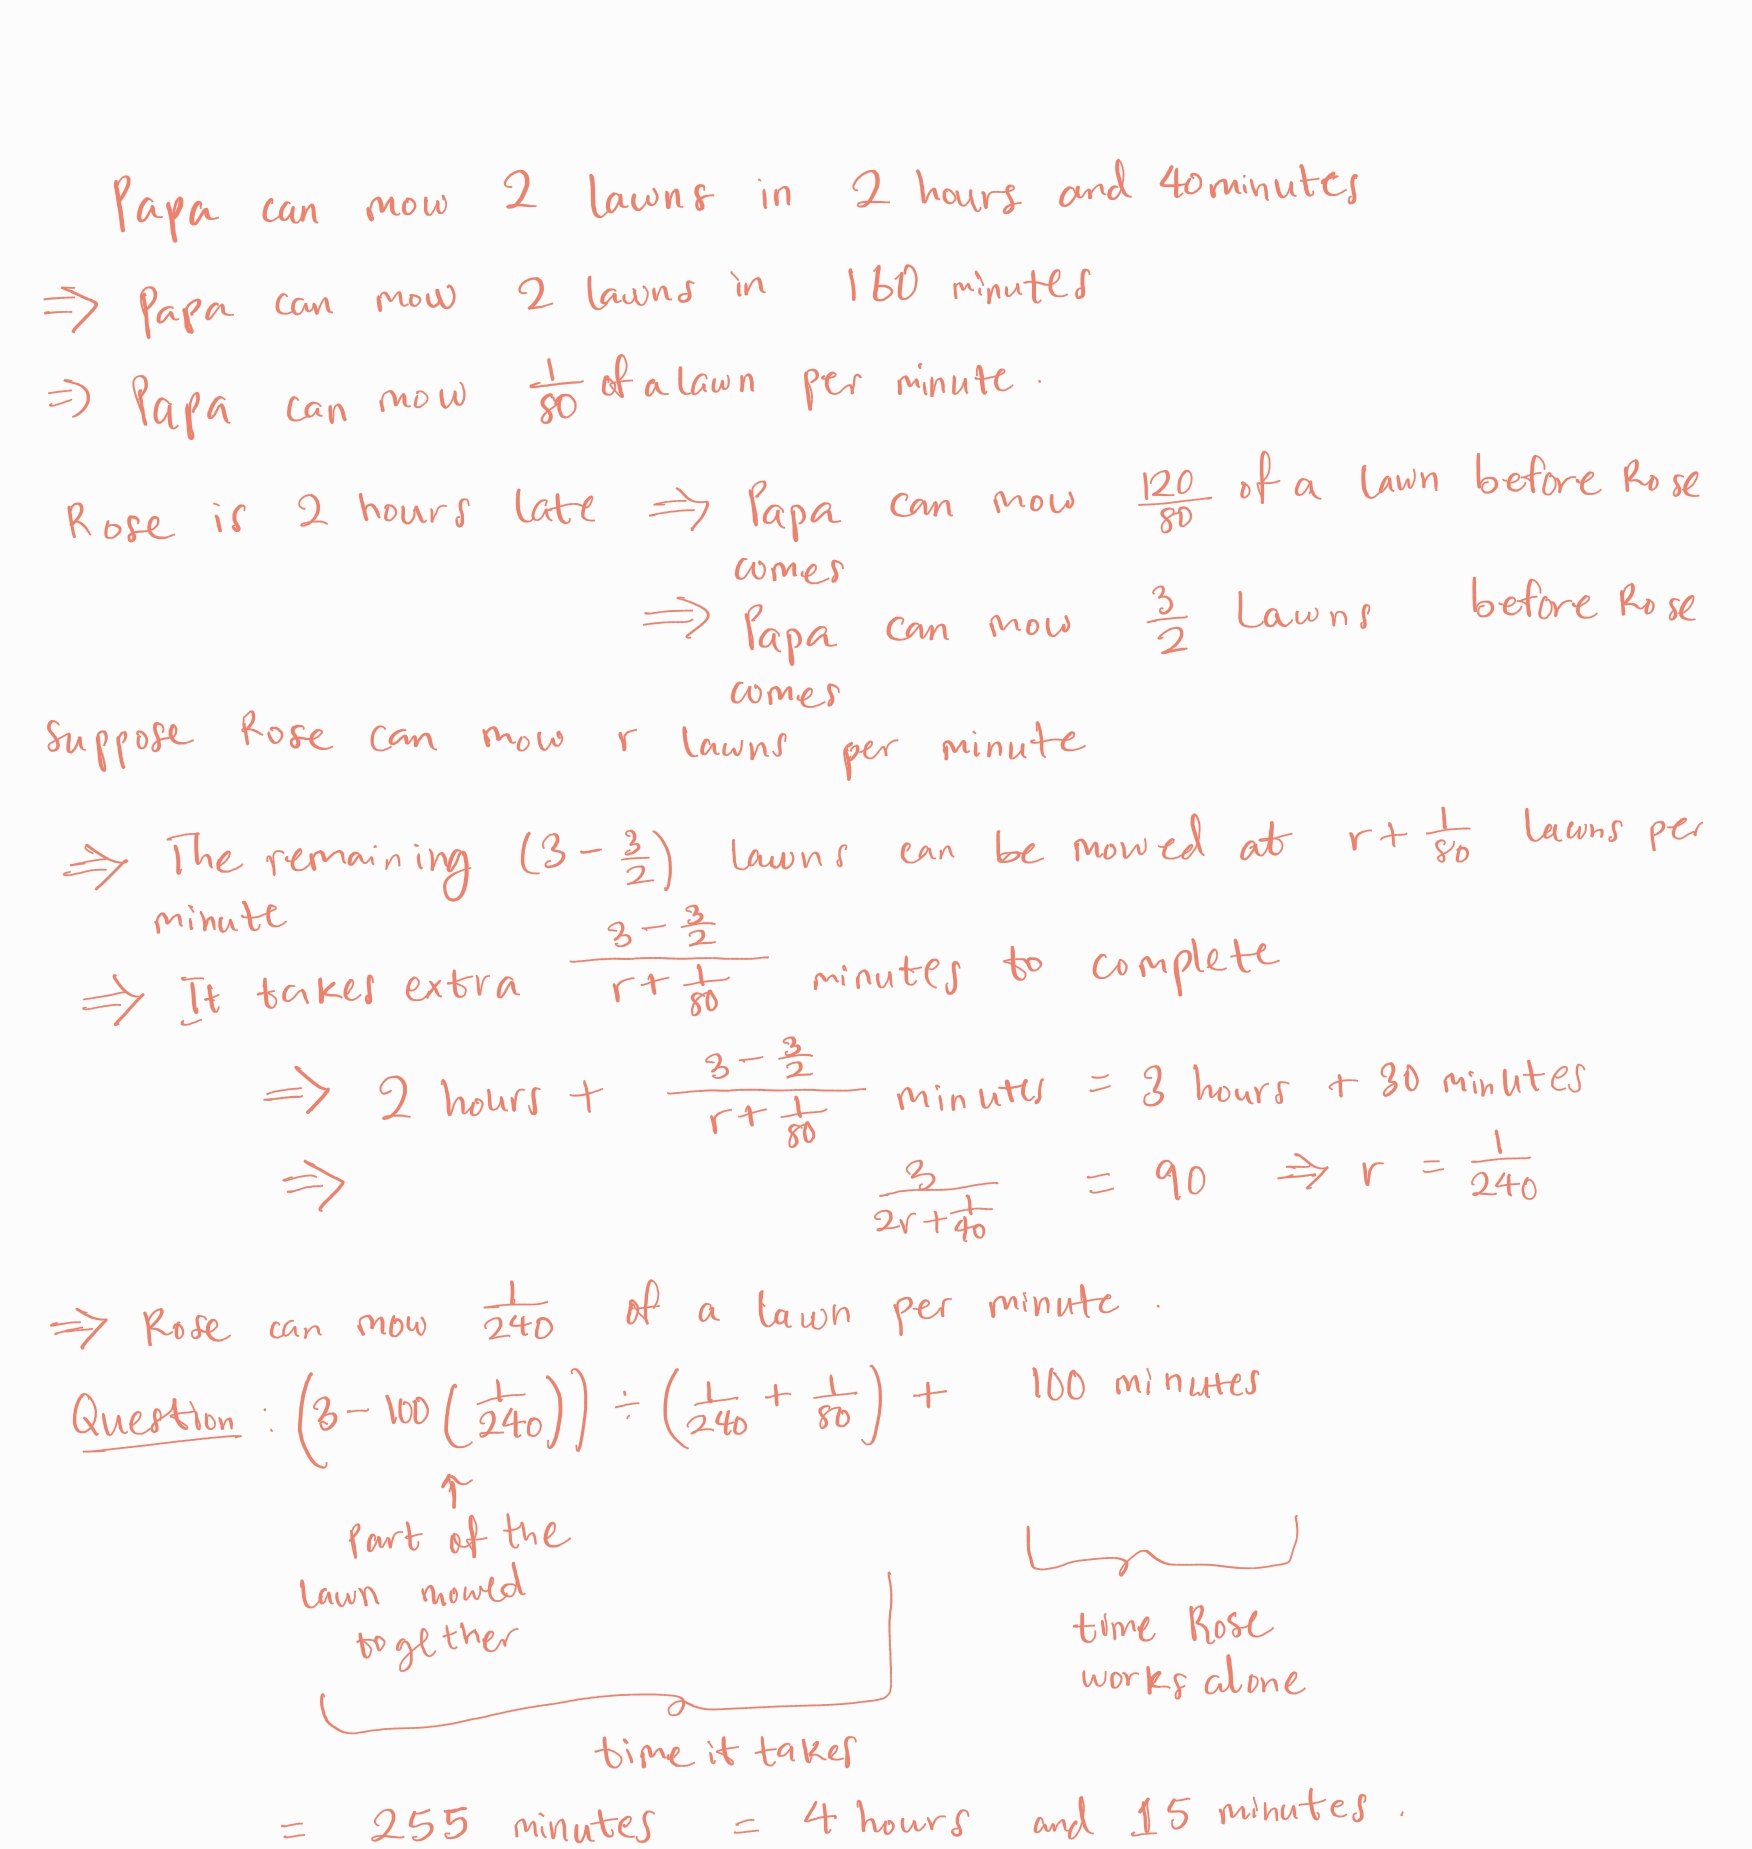 Papa can mow 2 lawns in 2 hours and 40 minutes
⇒ Papa can mow 2 lawns in 160 minutes
⇒ Papa can mow 1/80 of a lawn per minute.
Rose is 2 hours late ⇒ Papa can mow 120/80 of a lawn before Rose
comes
⇒ Papa can mow 3/2 Lawns before Rose
comes
Suppose Rose can mow r lawns per minute
⇒ The remaining (3 - 3/2) lawns can be mowed at r + 1/80 lawns per
minute
⇒ It takes extra (3 - 3/2)/(r + 1/80) minutes to complete
⇒ 2 hours + (3 - 3/2)/(r + 1/80) minutes = 3 hours + 30 minutes
⇒ 3/(2r + 1/40) = 90 ⇒ r = 1/240
⇒ Rose can mow 1/240 of a lawn per minute.
Question : (3 - 100(1/240)) ÷ (1/240 + 1/80) + 100 minutes
↑
Part of the
Lawn mowed
together
time Rose
works alone
time it takes
= 255 minutes = 4 hours and 15 minutes.